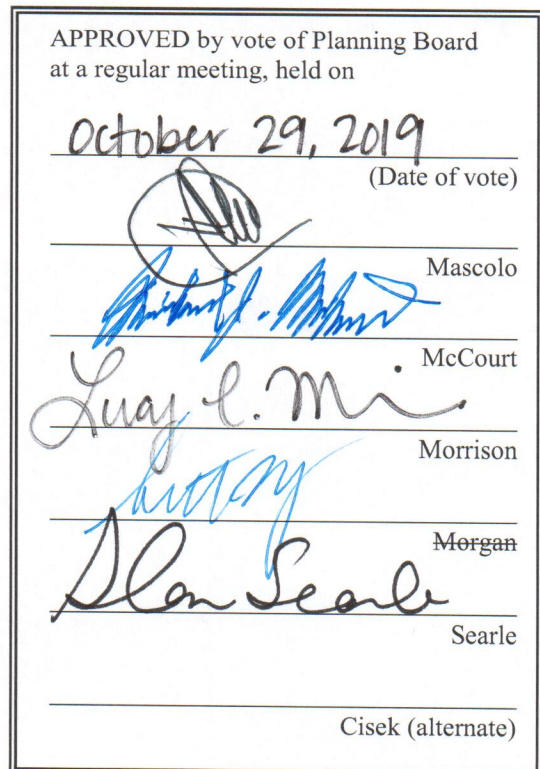 APPROVED by vote of Planning Board
at a regular meeting, held on
October 29, 2019
(Date of vote)
Mascolo
McCourt
Lucy C. M
Morrison
Morgan
Alan Searle
Searle
Cisek (alternate)